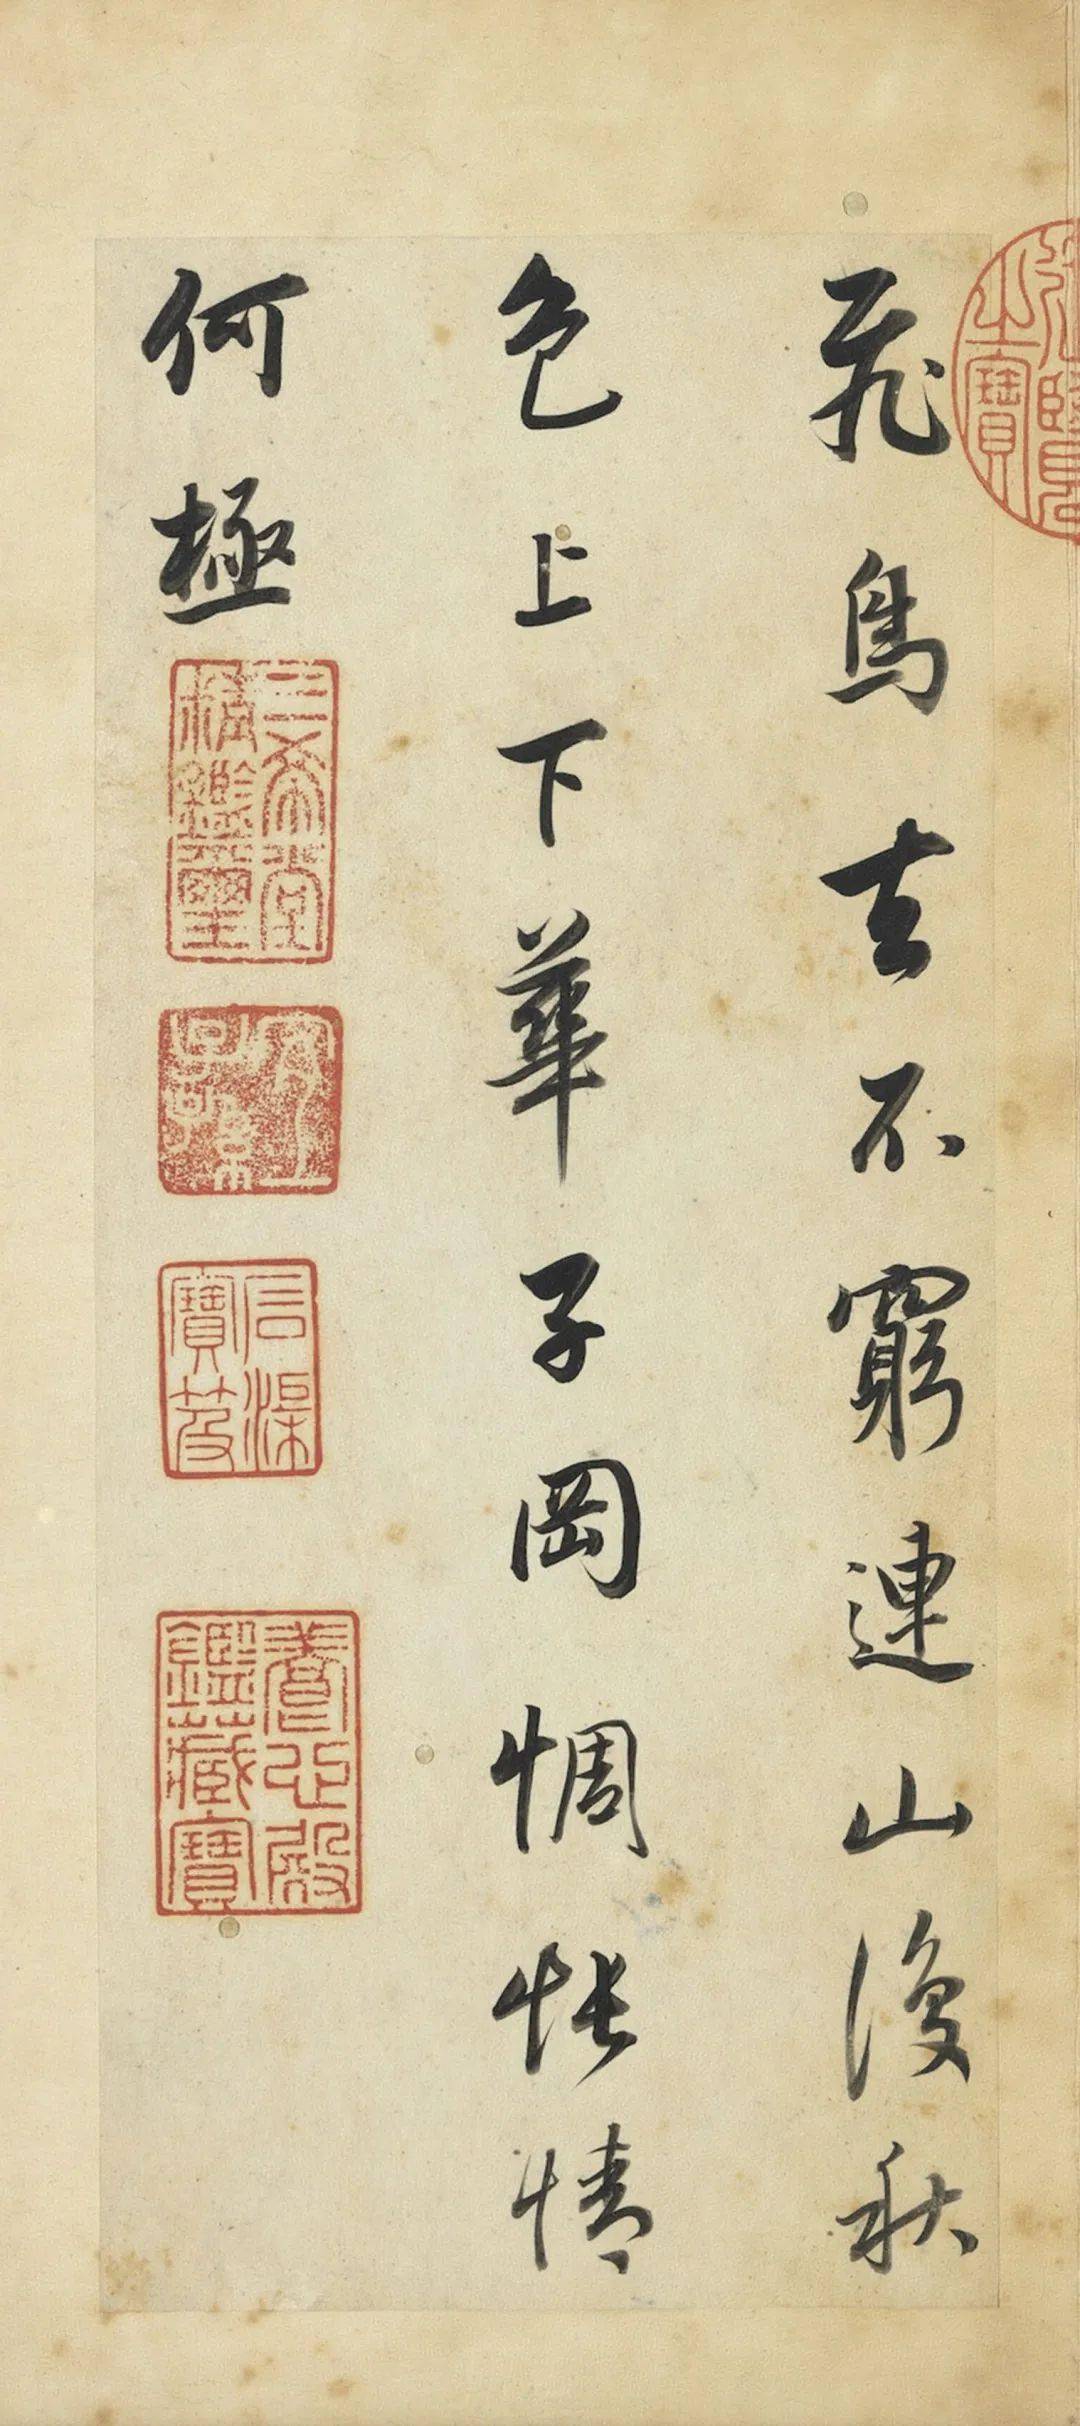 飛鳥去不窮連山復秋
色上下華子岡惆悵情
何極
三希堂
精鑑璽
宜子孫
石渠
寶笈
養心殿
鑑藏寶